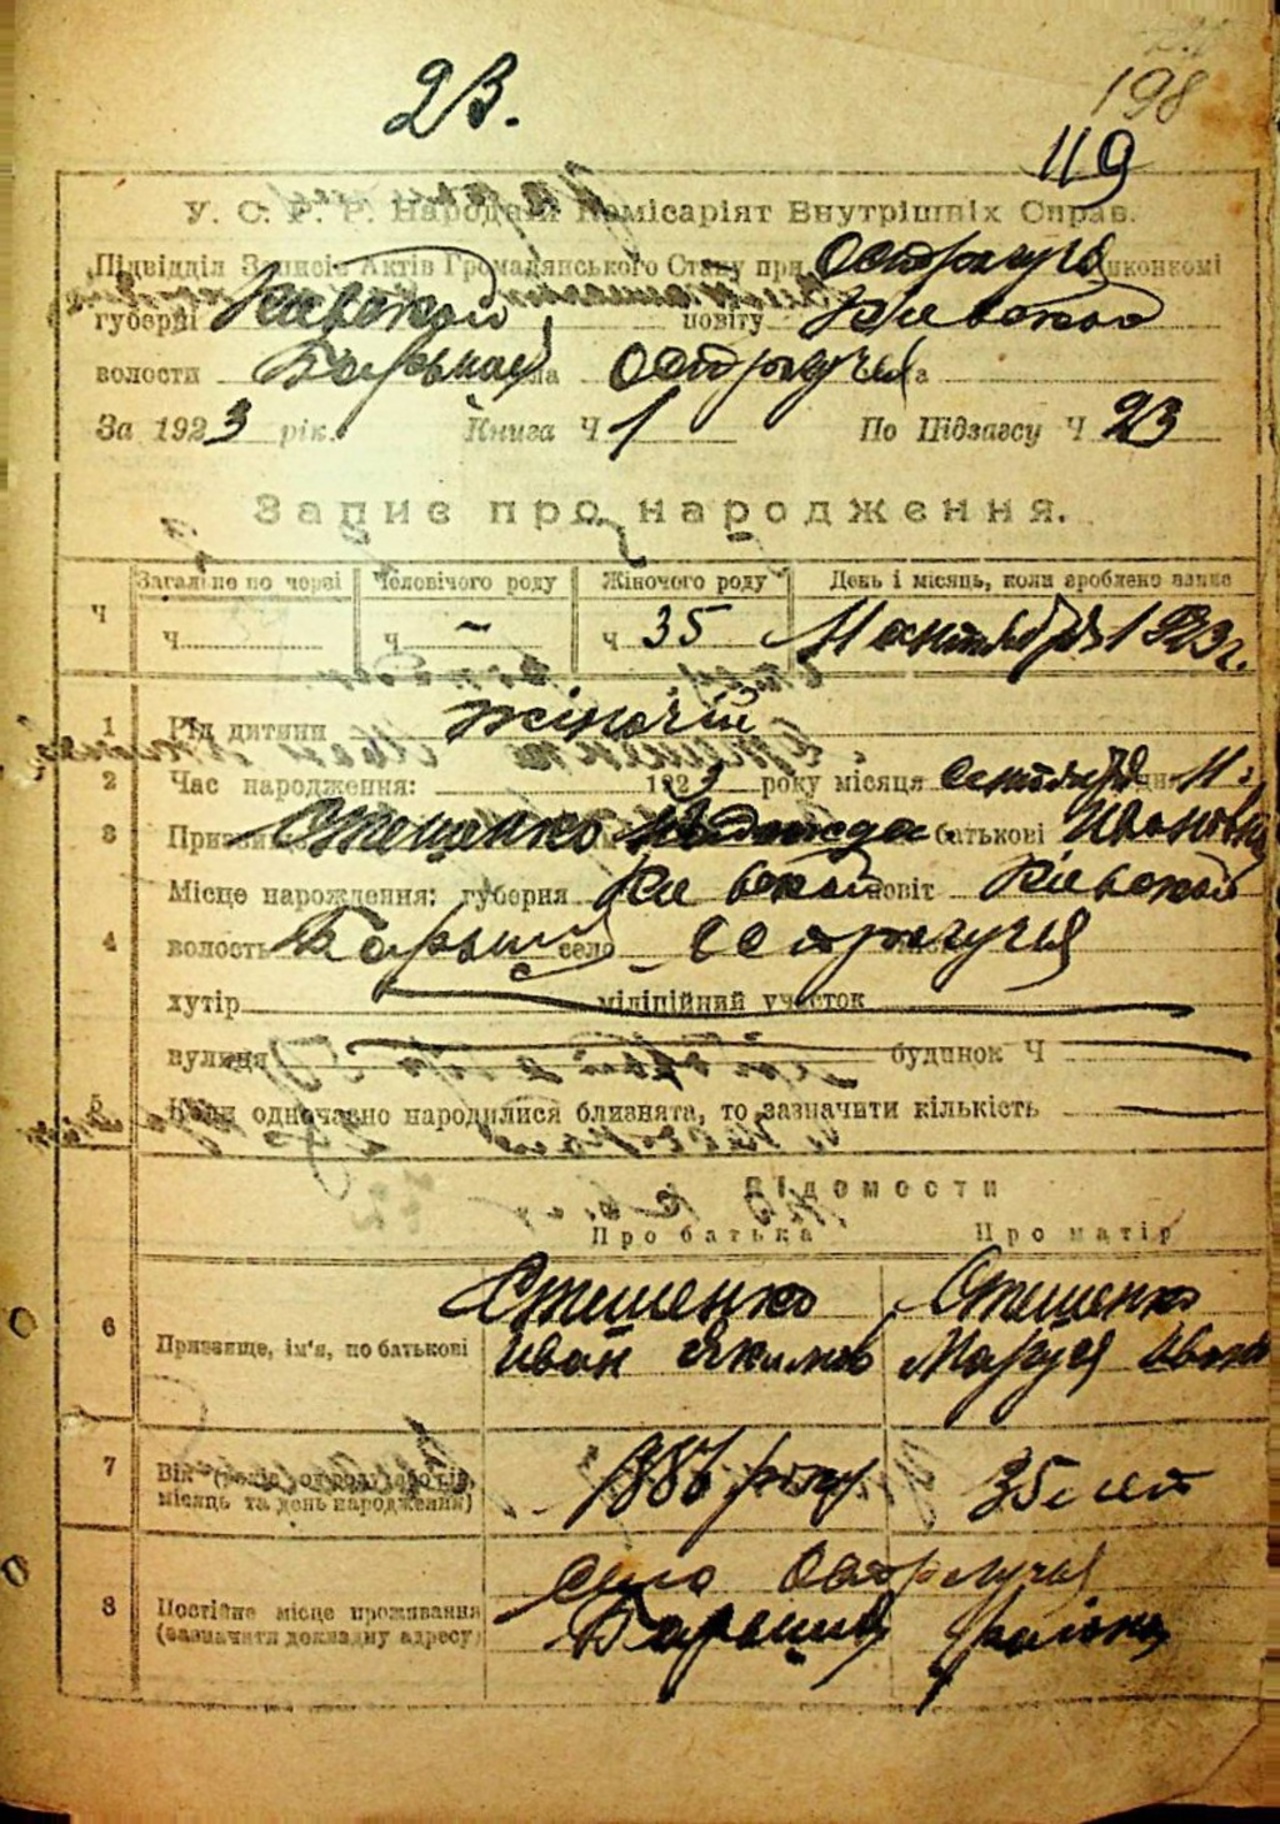 23.
198
119
У. С. Р. Р. Народній Комісаріят Внутрішніх Справ.
Підвідділ Записів Актів Громадянського Стану при Остролучя виконкомі
губерні Киевской повіту Киевской
волости села Остролучья
За 1923 рік. Книга Ч 1 По Підзагсу Ч 23
Запис про народження.
Ч
Загальне по черзі Чоловічого роду Жіночого роду День і місяць, коли зроблено запис
ч. ч – ч 35 11 сентября 1923 г.
1 Рід дитини жіночій
2 Час народження: 1923 року місяця сентября дня 11
3 Призвище Стешенко Надежда батькові Ивановна
Місце нарождення: губерня Киевской повіт Киевской
4 волость село Остролучья
хутір міліційний участок
вулиця будинок Ч
5 Коли одночасно народилися близнята, то зазначити кількість
Відомости
Про батька Про матір
Стешенко Стешенко
6 Призвище, ім'я, по батькові Иван Якимов Маруся Иванов
7 Вік (
місяць та день народження) року 35 лет
село Остролучья
8 Постійне місце проживання
(зазначити докладну адресу) района